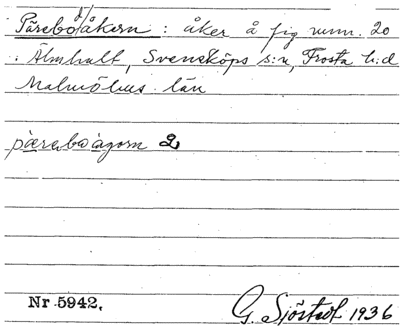 Pärebo d/åkern : åker å fig num. 20
i Älmhult, Svensköps s:n, Frosta h:d
Malmöhus län
pæreboågorn 2
Nr 5942. G. Sjöstedt 1936